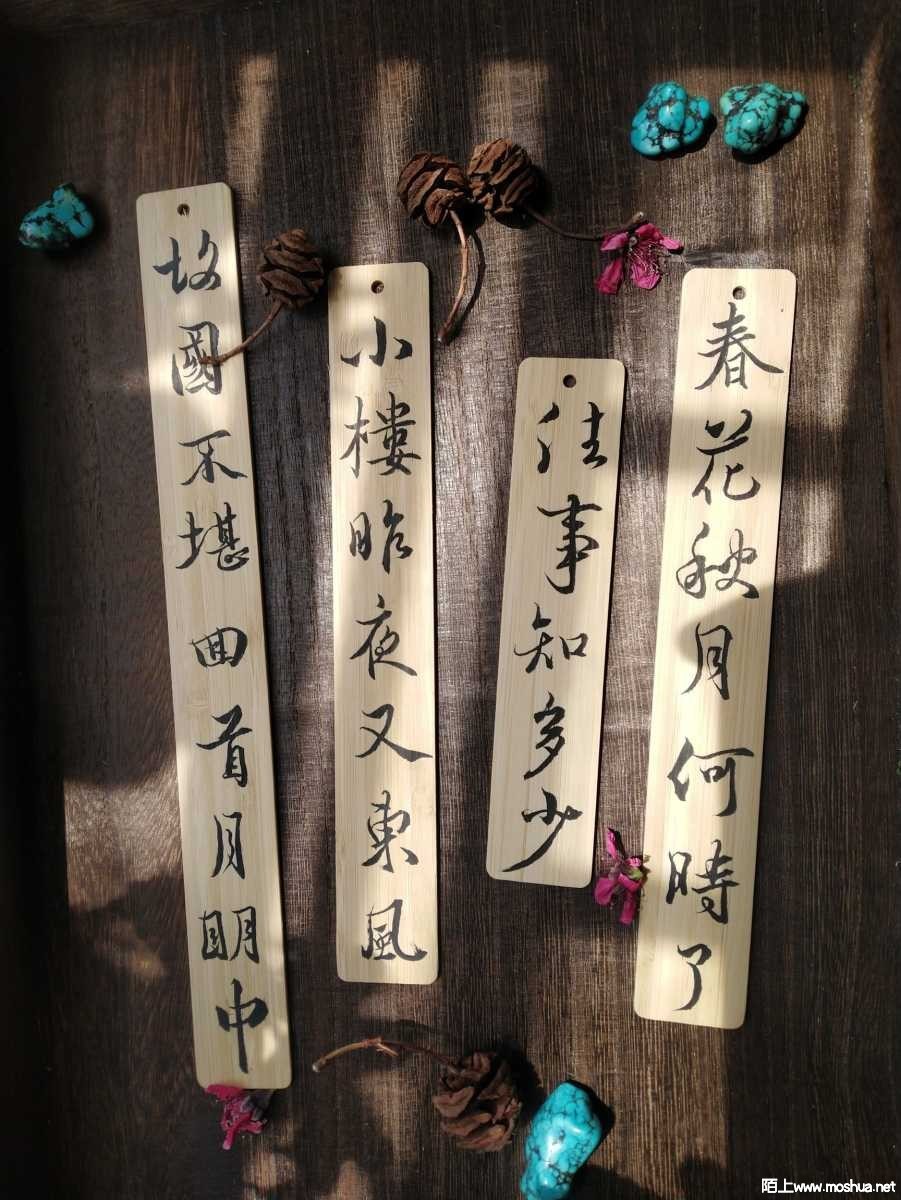 春花秋月何時了
往事知多少
小樓昨夜又東風
故國不堪回首月明中
陌上www.moshua.net